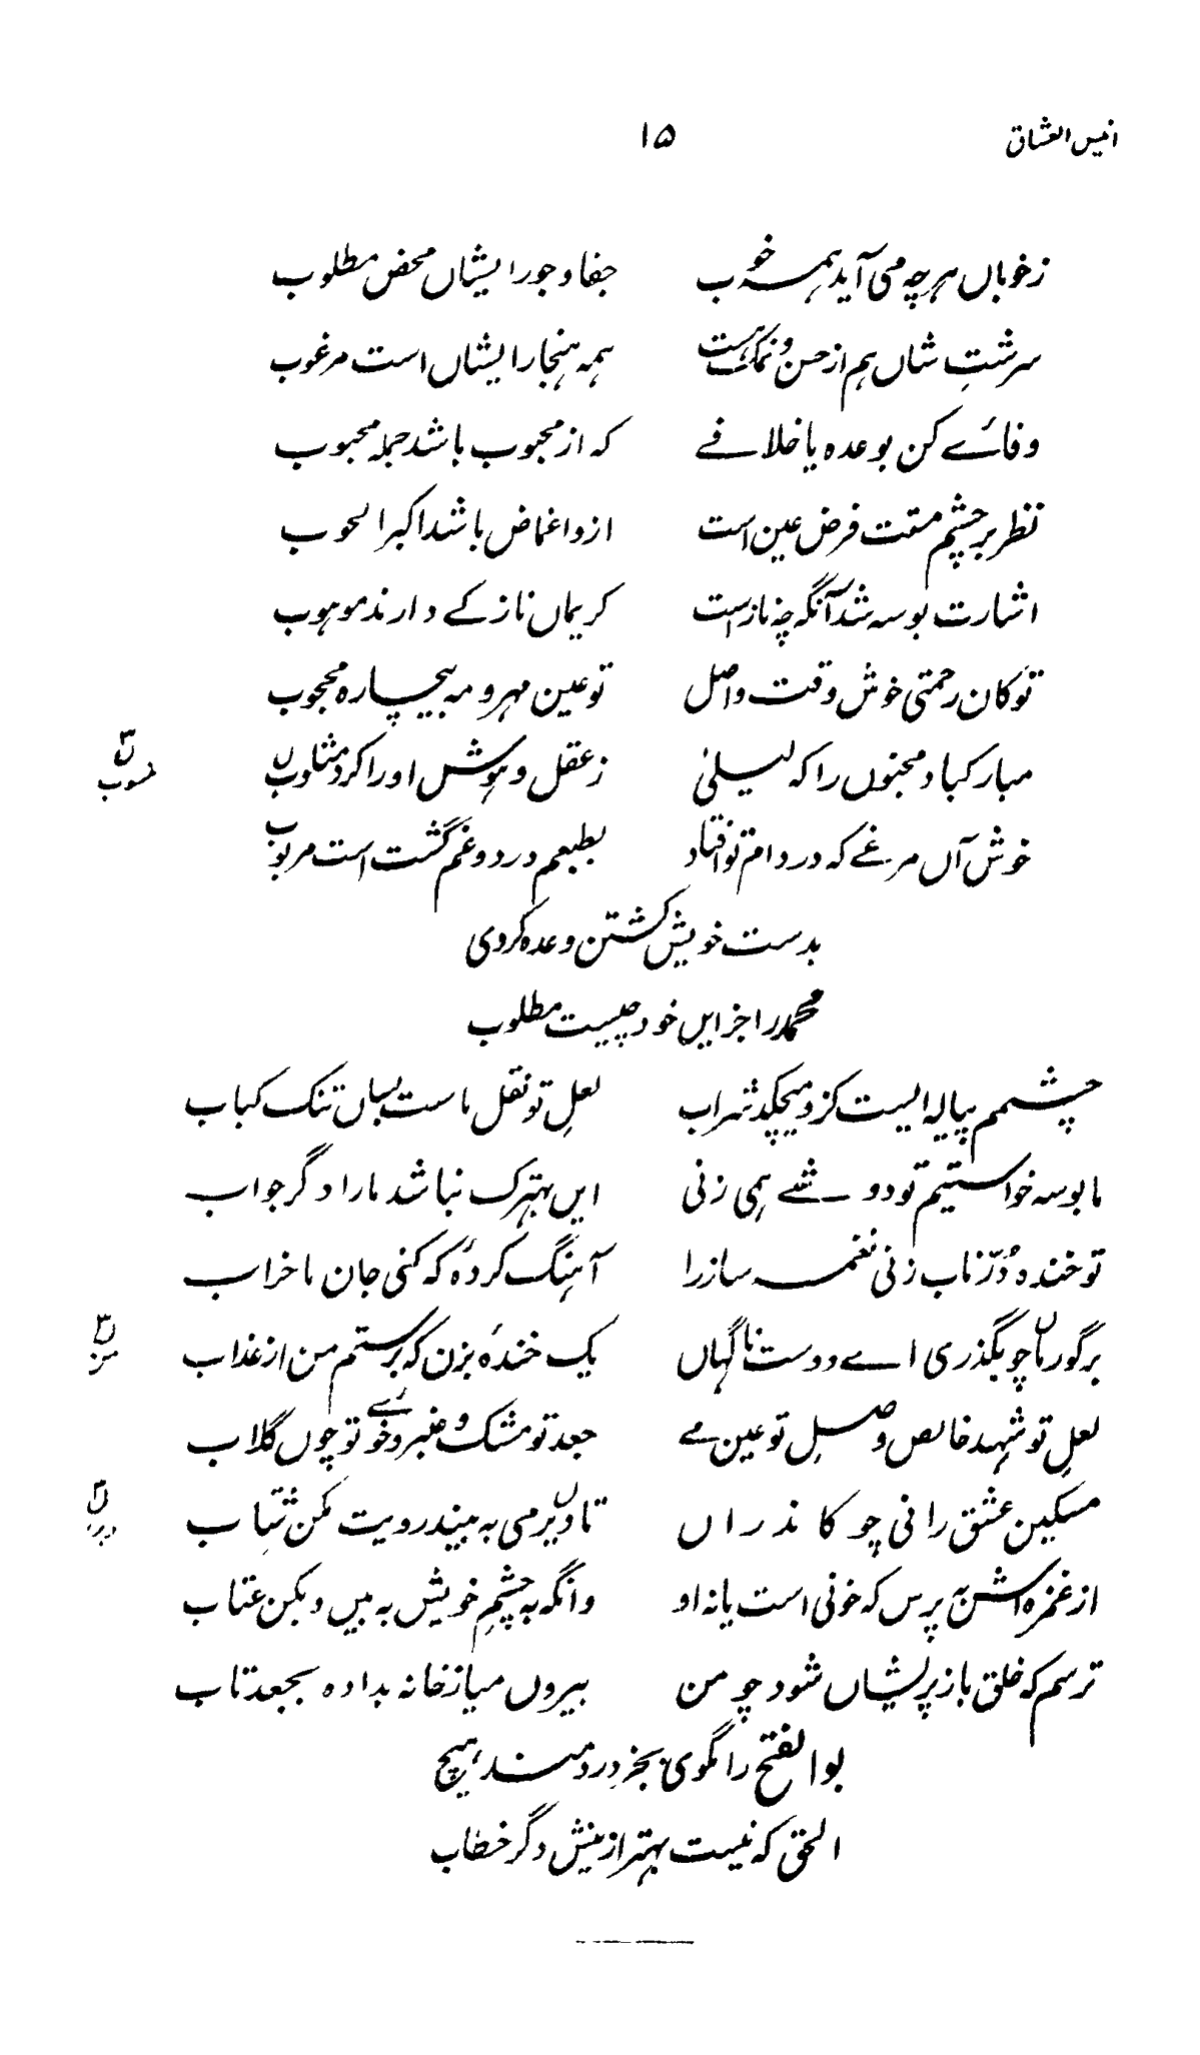 انیس العشاق ۱۵
زخوباں ہرچہ می آید ہمہ خوب جفا و جور ایشاں محض مطلوب
سرشتِ شاں ہم از حسن و نمک است ہمہ ہنجار ایشاں است مرغوب
وفائے کن بوعدہ یا خلافے کہ از محبوب باشد جملہ محبوب
نظر بر چشم مستت فرض عین است ازو اغماض باشد اکبر الحوب
اشارت بوسہ شد آنگہ چہ ناز است کریماں ناز کے دارند موہوب
تو کان رحمتی خوش وقت واصل تو عین مہر و مہ بیچارہ محجوب
مبارکباد مجنوں را کہ لیلیٰ ز عقل و ہوش او را کرد مثلوب ن
ن۳ مسوب
خوش آں مرغے کہ در دام تو افتاد بطبعم درد و غم گشت است مربوب
بدست خویش کشتن وعدہ کردی
محمد را جز ایں خود چیست مطلوب
چشمم پیالہ ایست کزو میچکد شراب لعلِ تو نقل ماست لبان تنک کباب
ما بوسہ خواستیم تو دو شے ہمی زنی ایں بہترک نباشد مارا دگر جواب
تو خندہ دُرّ ناب زنی نغمہ ساز را آہنگ کردۂ کہ کنی جان ما خراب
بر گور ما ن چو بگذری اے دوست ناگہاں یک خندۂ بزن کہ برستم من از عذاب
ن۳ من
لعلِ تو شہد خالص و وصلِ تو عین مے جعد تو مشک و عنبر و خوئے تو چوں گلاب
مسکین عشق رانی چو کاندراں تا دیر ن می بہ بیند رویت مکن شتاب
ن۳
از غمزہ اش بہ پرس کہ خونی است یا نہ او وانگہ بہ چشمِ خویش بہ بیں و بکن عتاب
ترسم کہ خلق باز پریشاں شود چو من بیروں میا ز خانہ بدادہ بجعد تاب
بوالفتح را مگوی بجز دردمند ہیچ
الحق کہ نیست بہتر ازینش دگر خطاب